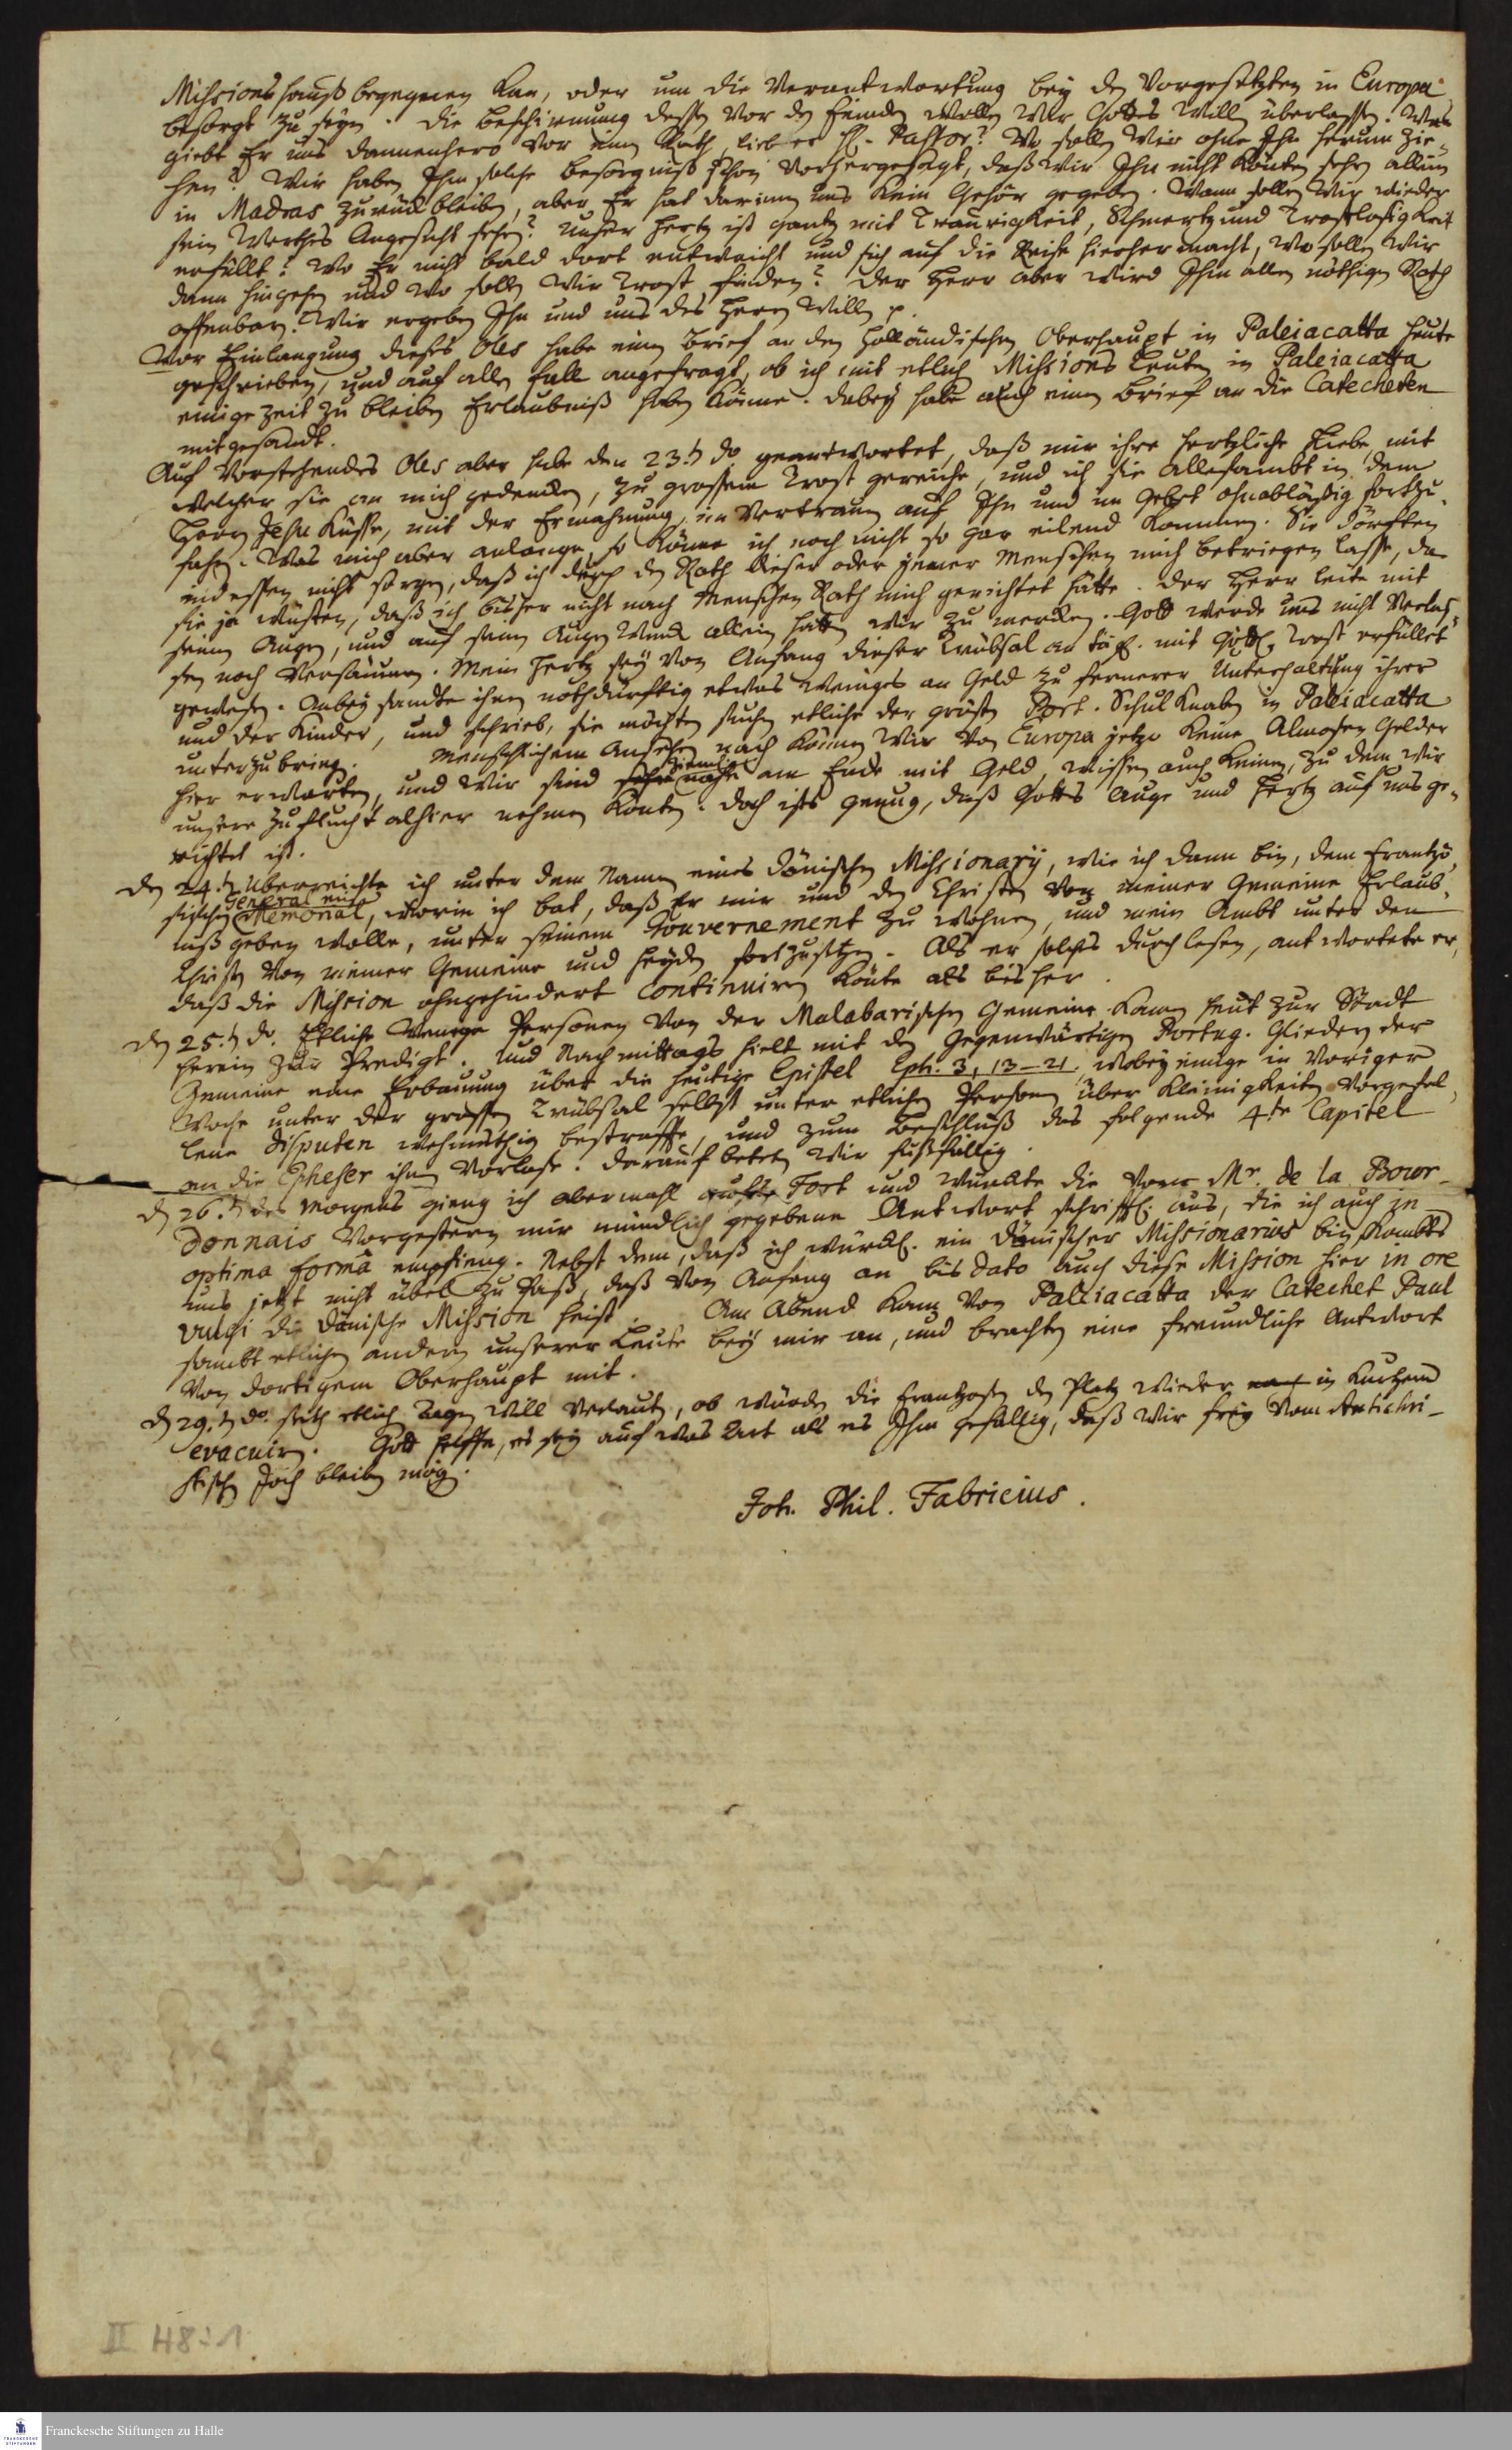 Missionshauß begegnen kan, oder um die Verantwortung bey den Vorgesetzten in Europa
besorgt zu seyn. Die Beschirmung dessen vor den Feinden wollen wir Gottes Willen überlassen. Was
giebt Er uns dannenhero vor einen Rath, lieber H. Pastor? Wo sollen wir ohne Ihn herum zie-
hen? Wir haben Ihm solche Besorgniß schon vorhergesagt, daß wir Ihn nicht könten sehen allein
in Madras zurückbleiben, aber Er hat darinnen uns kein Gehör gegeben. Wann sollen wir wieder
sein werthes Angesicht sehen? Unser Hertz ist gantz mit Traurigkeit, Schmertz und Trostlosigkeit
erfüllt. Wo Er nicht bald dort entweicht und sich auf die Reise hieher macht, wo sollen wir
dann hingehen und wo sollen wir Trost finden? Der Herr aber wird Ihm allen nöthigen Rath
offenbaren. Wir ergeben Ihn und uns des Herrn Willen p.
Vor Einlangung dieses Oles habe einen Brief an den Holländischen Oberhaupt in Paleiacatta heute
geschrieben, und auf allen Fall angefragt, ob ich mit etlichen Missions Leuten in Paleiacatta
einige Zeit zu bleiben Erlaubniß haben könne. Dabey habe auch einen Brief an die Catecheten
mitgesandt.
Auf vorstehendes Oles aber habe den 23.ten do. geantwortet, daß mir ihre hertzliche Liebe, mit
welcher sie an mich gedencken, zu grossem Trost gereiche, und ich sie allesambt in dem
Herrn Jesu küsse, mit der Ermahnung, im Vertrauen auf Ihn und im Gebet ohnabläßig fortzu-
fahren. Was mich aber anlange, so könne ich noch nicht so gar eilend kommen. Sie dörften
indessen nicht sorgen, daß ich durch den Rath dieser oder jener Menschen mich betriegen lasse, da
sie ja wüsten, daß ich bisher nicht nach Menschen Rath mich gerichtet hätte. Der Herr leite mit
seinen Augen, und auf seinen Augen Winck allein hätten wir zu mercken. Gott werde uns nicht verlas-
sen noch versäumen. Mein Hertz sey von Anfang dieser Trübsal an tägl. mit Göttl. Trost erfüllet
gewesen. Anbey sandte ihnen nothdürftig etwas weniges an Geld zu fernerer Unterhaltung ihrer
und der Kinder, und schrieb, sie möchten suchen etliche der grösten Port. Schul Knaben in Palleiacatta
unterzubringen. Menschlichem Ansehen nach können wir von Europa jetzo keine Almosen Gelder
hier erwarten, und wir sind sehr nahe ziemlich am Ende mit Geld, wissen auch keinen, zu dem wir
unsere Zuflucht alhier nehmen könten. Doch ists genug, daß Gottes Auge und Hertz auf uns ge-
richtet ist.
Den 24.ten Überreichte ich unter dem Namen eines Dänischen Missionarii, wie ich dann bin, dem Frantzö-
sischen General ein Memorial, worin ich bat, daß Er mir und den Christen von meiner Gemeine Erlaub-
niß geben wolle, unter seinem Gouvernement zu wohnen, und mein Ambt unter den
Christen von meiner Gemeine und Heyden fortzusetzen. Als er solches durchlesen, antwortete er,
daß die Mission ohngehindert continuiren könte als bisher.
Den 25.ten do. Etliche wenige Personen von der Malabarischen Gemeine kamen heut zur Stadt
herein zur Predigt. Und Nachmittags hielt mit den gegenwärtigen Portug. Gliedern der
Gemeine eine Erbauung über die heutige Epistel Eph. 3, 13–21. wobey einige in voriger
Woche unter der grossen Trübsal selbst unter etlichen Personen über Kleinigkeiten vorgefal-
lene Disputen wehmüthig bestraffte, und zum Beschluß das folgende 4.te Capitel
an die Epheser ihnen vorlase. Darauf beteten wir fußfällig.
Den 26.ten des Morgens gieng ich abermahl aufs Fort und würckte die vom Mr. de la Bour-
donnais vorgestern mir mündlich gegebene Antwort schriftl. aus, die ich auch in
optima formâ empfieng. Nebst dem, daß ich würckl. ein Dänischer Missionarius bin, kombts
uns jetzt nicht übel zu Paß, daß von Anfang an bis dato auch diese Mission hier in ore
vulgi die Dänische Mission heist. Am Abend kam von Palleiacatta der Catechet Paul
sambt etlichen andern unserer Leute bey mir an, und brachten eine freundliche Antwort
von dortigem Oberhaupt mit.
Den 29.ten do. seith etlichen Tagen will verlauten, ob würden die Frantzosen den Platz wieder in kurtzem
evacuiren. Gott helffe, es sey auf was Art als es Ihm gefällig, daß wir frey vom Antichri-
stischen Joch bleiben mögen.
Joh. Phil. Fabricius.
II H8:1
Franckesche Stiftungen zu Halle